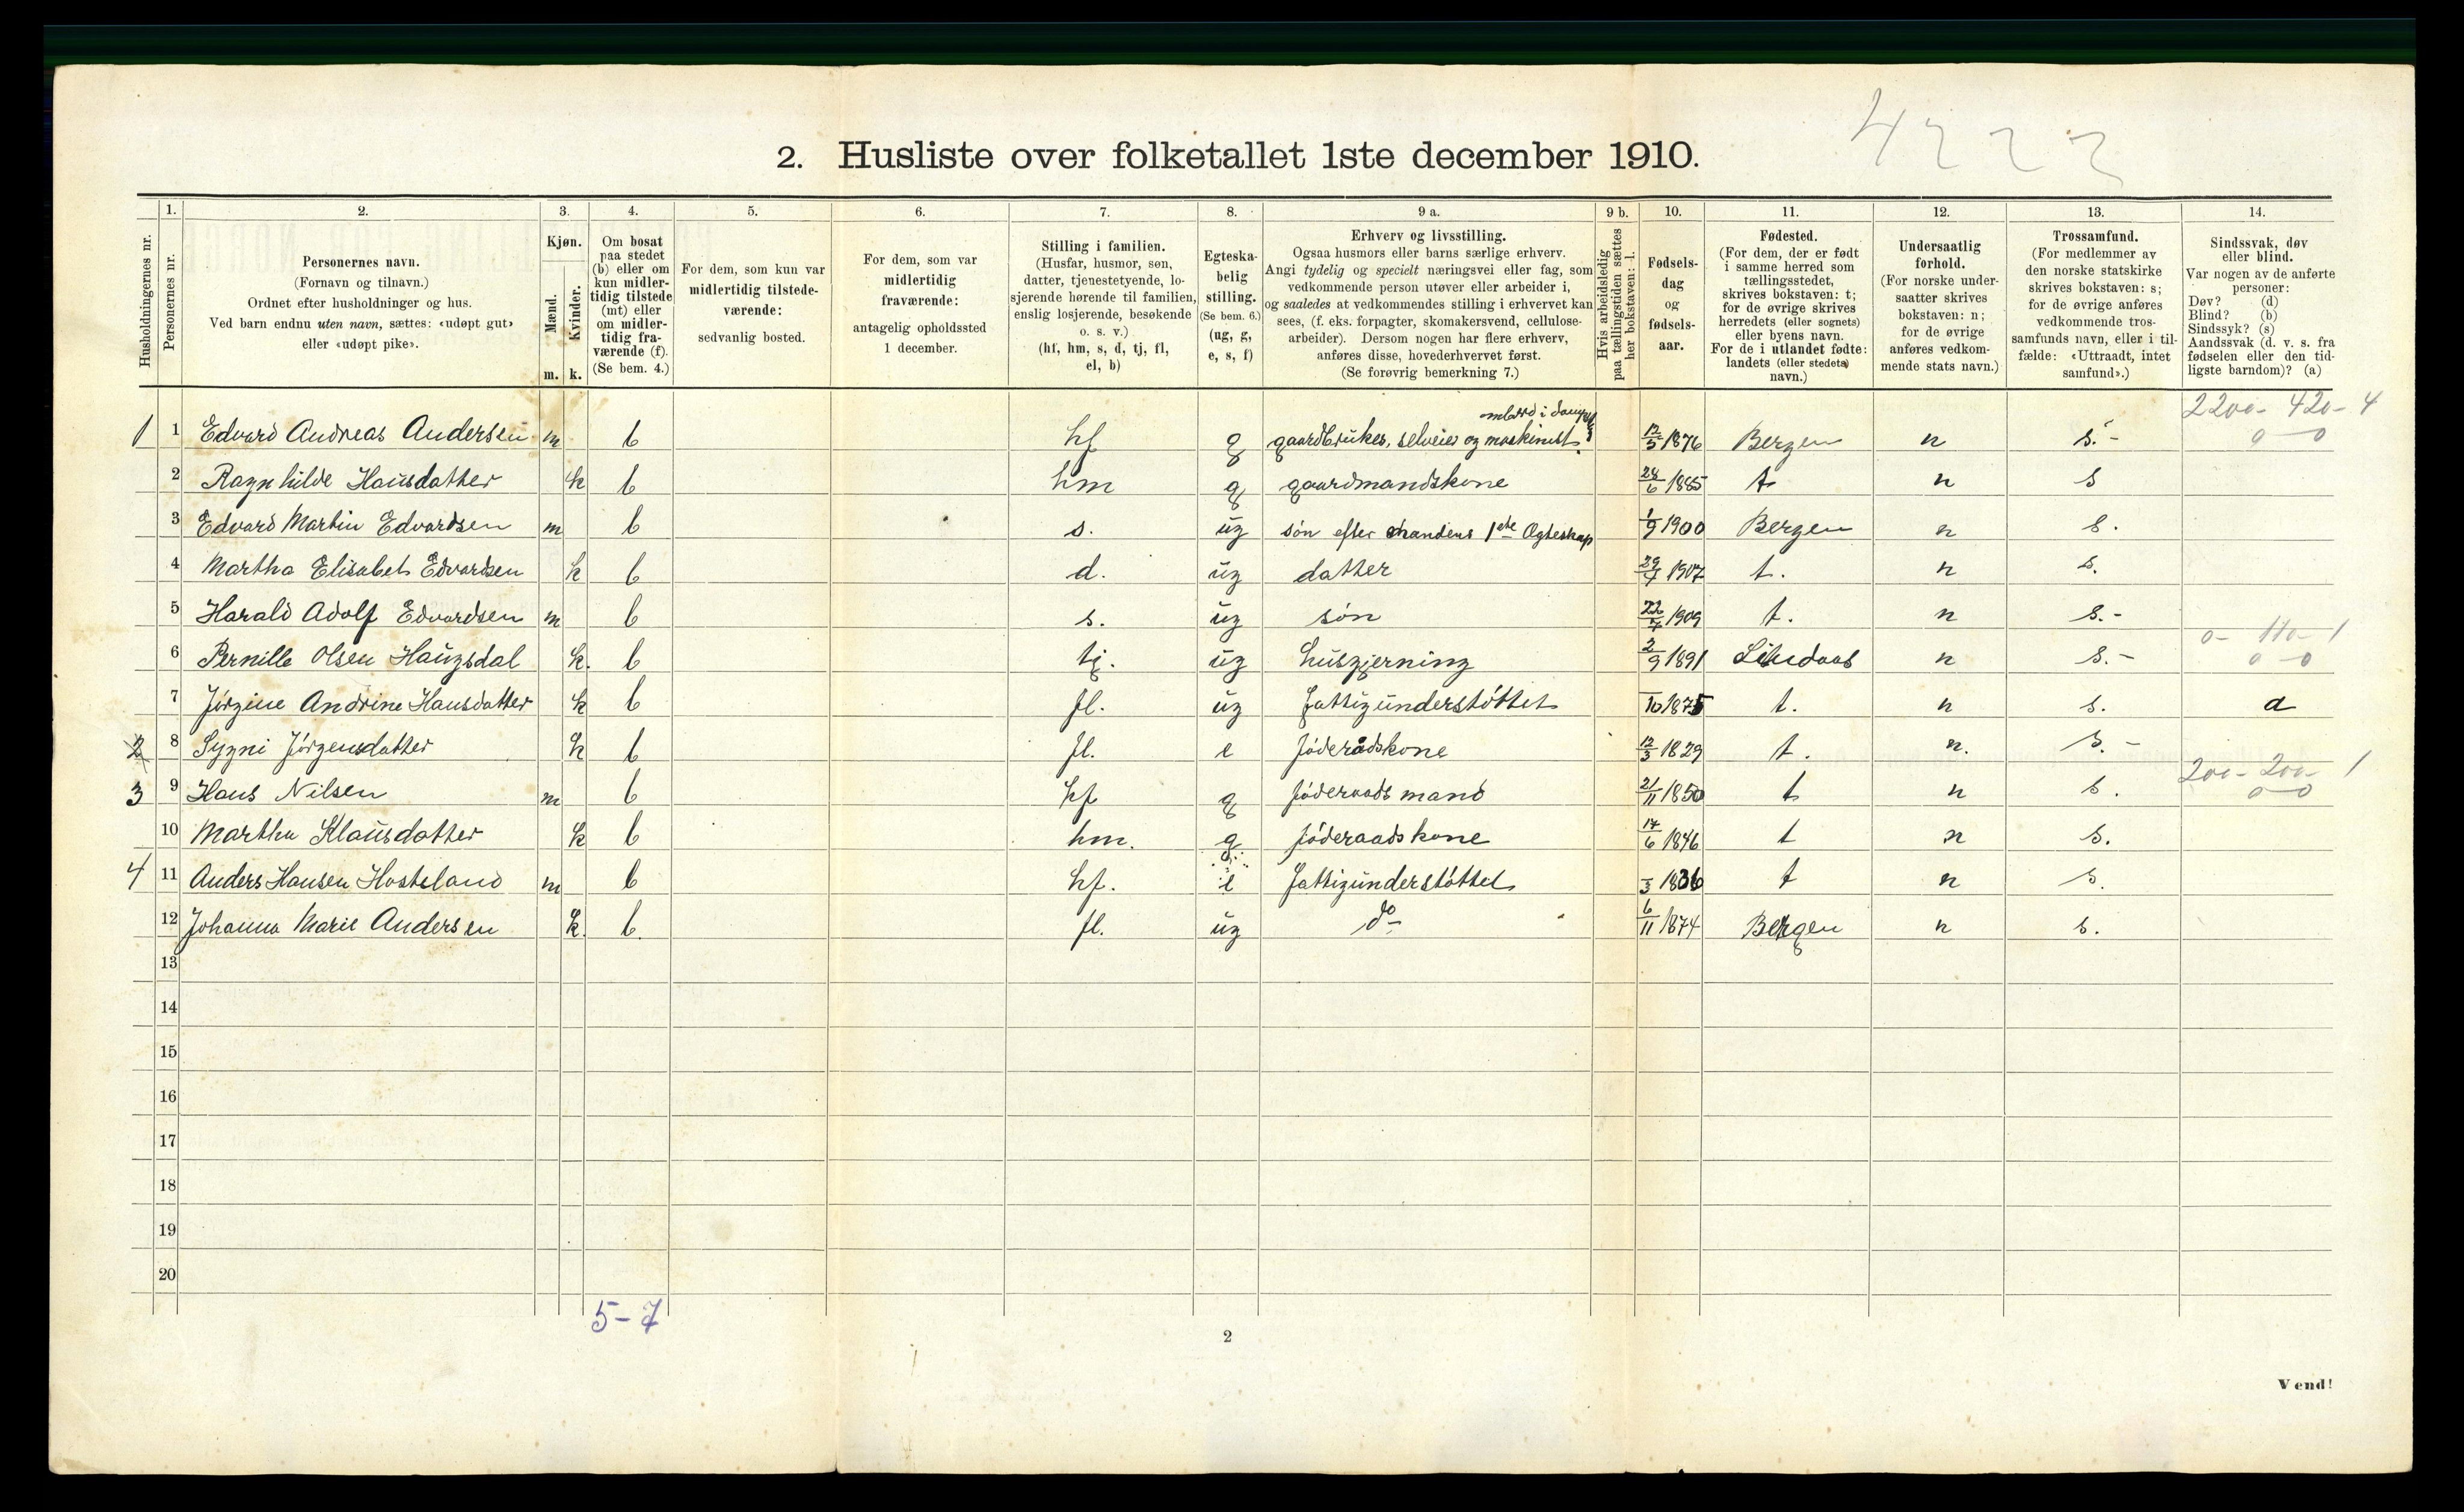 4222
2. Husliste over folketallet 1ste december 1910.
Husholdningernes nr.
1.
Personernes nr.
2.
Personernes navn.
(Fornavn og tilnavn.)
Ordnet efter husholdninger og hus.
Ved barn endnu uten navn, sættes: «udøpt gut»
eller «udøpt pike».
3.
Kjøn.
Mænd.
Kvinder.
m. k.
4.
Om bosat
paa stedet
(b) eller om
kun midler-
tidig tilstede
(mt) eller
om midler-
tidig fra-
værende (f).
(Se bem. 4.)
5.
For dem, som kun var
midlertidig tilstede-
værende:
sedvanlig bosted.
6.
For dem, som var
midlertidig
fraværende:
antagelig opholdssted
1 december.
7.
Stilling i familien.
(Husfar, husmor, søn,
datter, tjenestetyende, lo-
sjerende hørende til familien,
enslig losjerende, besøkende
o. s. v.)
(hf, hm, s, d, tj, fl,
el, b)
8.
Egteska-
belig
stilling.
(Se bem. 6.)
(ug, g,
e, s, f)
9 a.
Erhverv og livsstilling.
Ogsaa husmors eller barns særlige erhverv.
Angi tydelig og specielt næringsvei eller fag, som
vedkommende person utøver eller arbeider i,
og saaledes at vedkommendes stilling i erhvervet kan
sees, (f. eks. forpagter, skomakersvend, cellulose-
arbeider). Dersom nogen har flere erhverv,
anføres disse, hovederhvervet først.
(Se forøvrig bemerkning 7.)
9 b.
Hvis arbeidsledig
paa tællingstiden sættes
her bokstaven: l.
10.
Fødsels-
dag
og
fødsels-
aar.
11.
Fødested.
(For dem, der er født
i samme herred som
tællingsstedet,
skrives bokstaven: t;
for de øvrige skrives
herredets (eller sognets)
eller byens navn.
For de i utlandet fødte:
landets (eller stedets)
navn.)
12.
Undersaatlig
forhold.
(For norske under-
saatter skrives
bokstaven: n;
for de øvrige
anføres vedkom-
mende stats navn.)
13.
Trossamfund.
(For medlemmer av
den norske statskirke
skrives bokstaven: s;
for de øvrige anføres
vedkommende tros-
samfunds navn, eller i til-
fælde: «Uttraadt, intet
samfund».)
14.
Sindssvak, døv
eller blind.
Var nogen av de anførte
personer:
Døv? (d)
Blind? (b)
Sindssyk? (s)
Aandssvak (d. v. s. fra
fødselen eller den tid-
ligste barndom)? (a)
2200- 420- 4
1 1 Edvard Andreas Andersen m b hf g gaardbruker, selveier og maskinist 12/5 1876 Bergen n s.- 0-0
2 Ragnhilde Hansdatter k b hm g gaardmandskone 28/6 1885 t n s
3 Edvard Martin Edvardsen m b s. ug søn efter mandens 1ste Ægteskap 1/9 1900 Bergen n s.
4 Martha Elisabet Edvardsen k b d. ug datter 29/7 1907 t. n s.
5 Harald Adolf Edvardsen m b s. ug søn 22/7 1909 t. n s.-
0- 110- 1
6 Pernille Olsen Haugsdal k. b tj. ug husgjerning 2/9 1891 Lindaas n s.- 0-0
7 Jørgine Andrine Hansdatter k b fl. ug fattigunderstøttet /10 1875 t. n s. a
2 8 Sygni Jørgensdatter k b fl. e føderådskone 12/3 1829 t. n. s.-
200- 200- 1
3 9 Hans Nilsen m b hf g føderaadsmand 21/11 1850 t n s. 0-0
10 Martha Klausdatter k b hm. g føderaadskone 17/6 1846 t n s.
4 11 Anders Hansen Hosteland m b hf. e fattigunderstøttet /3 1836 t n s.
12 Johanna Marie Andersen k. b. fl. ug do 6/11 1874 Bergen n s.
13
14
15
16
17
18
19
20
5-7
2
Vend!